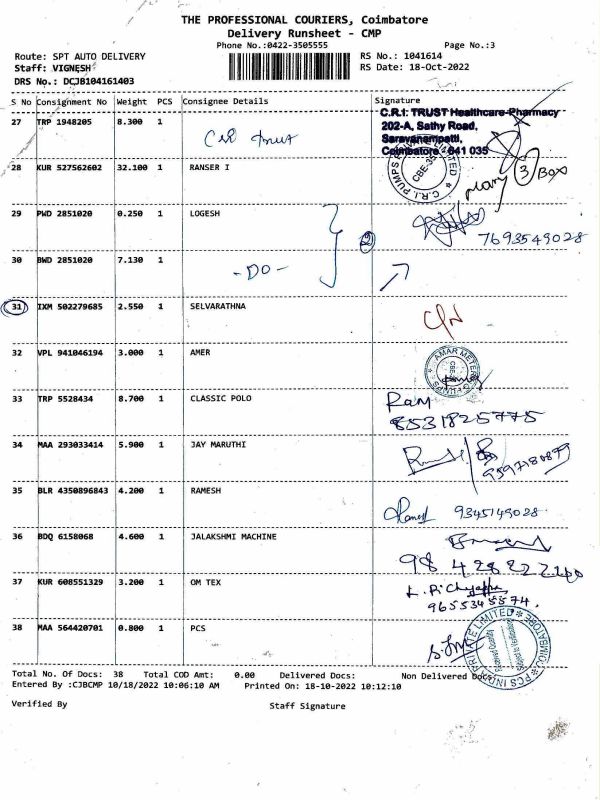 THE PROFESSIONAL COURIERS, Coimbatore
Delivery Runsheet - CMP
Phone No.:0422-3505555 Page No.:3
Route: SPT AUTO DELIVERY RS No.: 1041614
Staff: VIGNESH RS Date: 18-Oct-2022
DRS No.: DCJB104161403
S No Consignment No Weight PCS Consignee Details Signature
C.R.I: TRUST Healthcare-Pharmacy
27 TRP 1948205 8.300 1
202-A, Sathy Road,
CRI Trust
Saravanampatti,
Coimbatore - 641 035
28 KUR 527562602 32.100 1 RANSER I
C.R.I. PUMPS LIMITED CBE-35
3 BOX
29 PWD 2851020 0.250 1 LOGESH
2
7693549028
30 BWD 2851020 7.130 1
-DO-
31 IXM 502279685 2.550 1 SELVARATHNA
C/N
32 VPL 941046194 3.000 1 AMER
AMAR METERING PUMPS CBE
33 TRP 5528434 8.700 1 CLASSIC POLO
Ram
8531825775
34 MAA 293033414 5.900 1 JAY MARUTHI
35 BLR 4350896843 4.200 1 RAMESH
Ramesh 9345149028
36 BDQ 6158068 4.600 1 JALAKSHMI MACHINE
37 KUR 608551329 3.200 1 OM TEX
9655345574
38 MAA 564420701 0.800 1 PCS
PCS PRIVATE LIMITED COIMBATORE
Total No. Of Docs: 38 Total COD Amt: 0.00 Delivered Docs: Non Delivered Docs:
Entered By :CJBCMP 10/18/2022 10:06:10 AM Printed On: 18-10-2022 10:12:10
Verified By Staff Signature